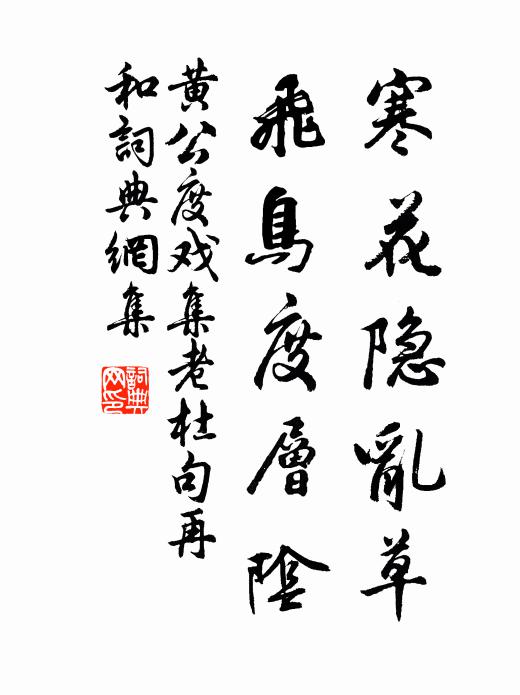 寒花隐亂草
飛鳥度層陰
黄公度戏集老杜句再
和詞典網集
詞典网印